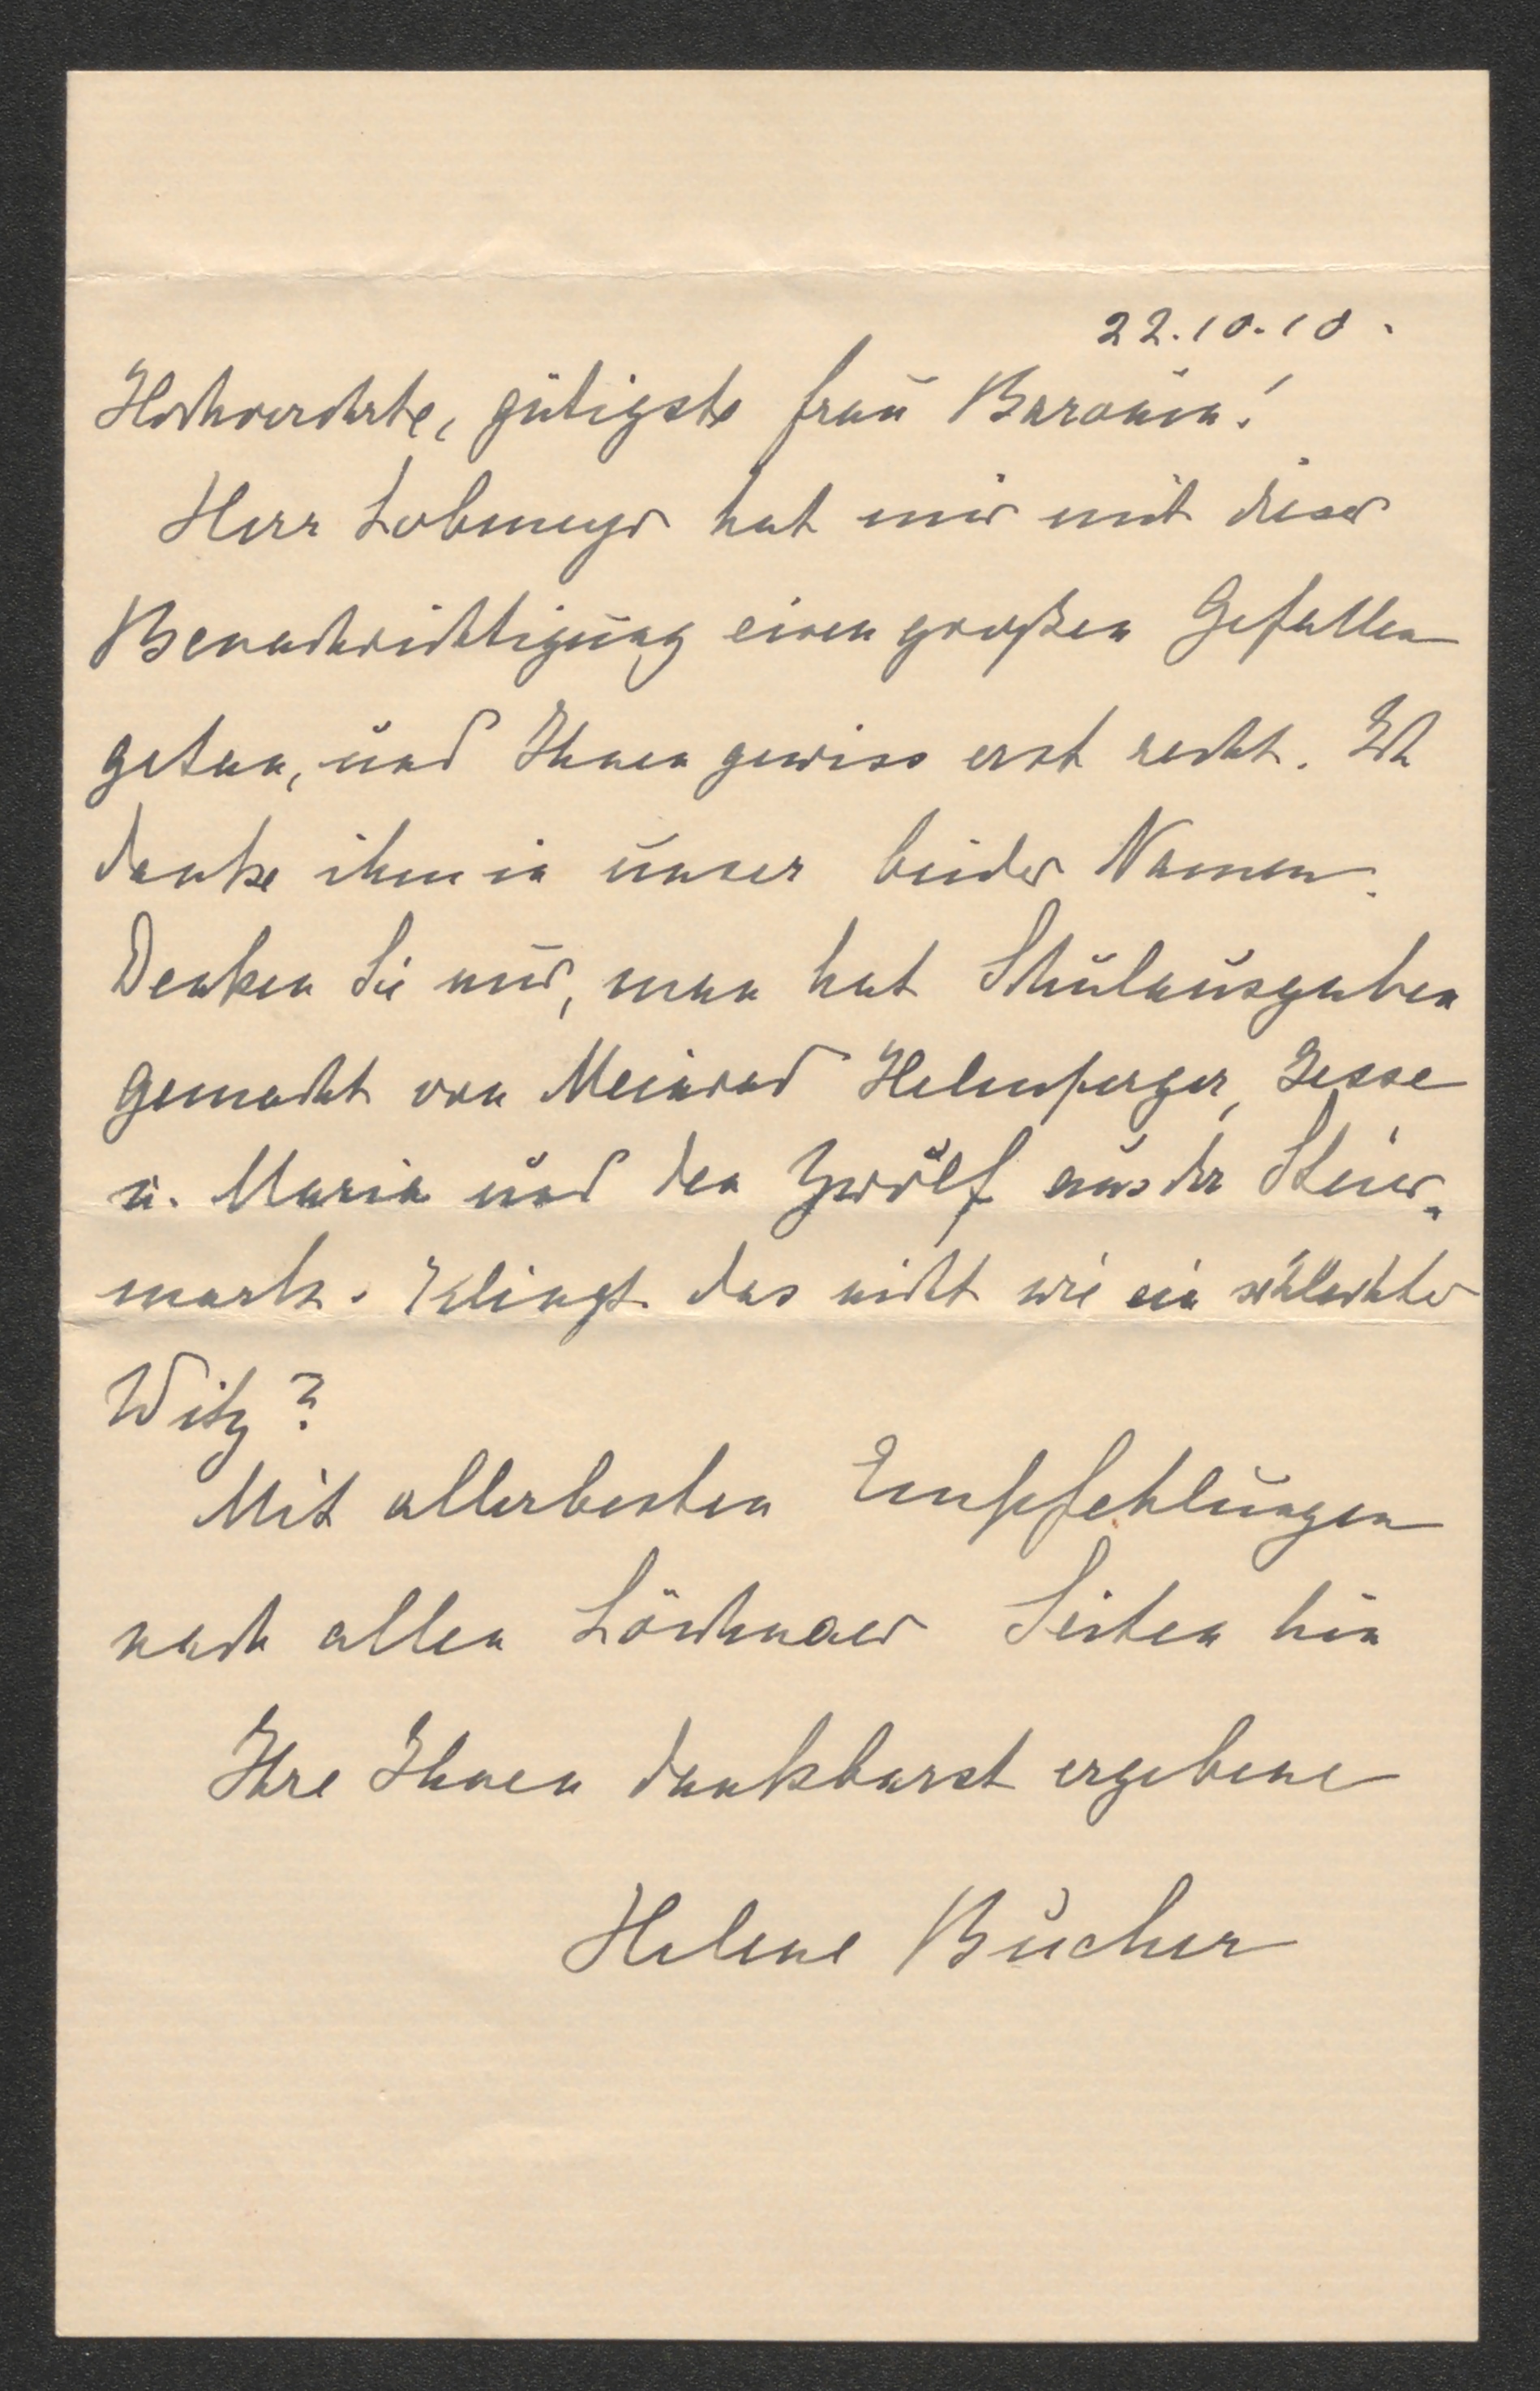 22.10.18.
Hochverehrte, gütigste Frau Baronin!
Herr Lobmeyr hat mir mit dieser
Benachrichtigung einen großen Gefallen
getan, und Ihnen gewiss erst recht. Ich
danke ihm in unser beider Namen.
Denken Sie nur, man hat Schulausgaben
gemacht von Meinrad Helmperger, Jesse
u. Maria und den Zwölf aus der Steier-
mark. Klingt das nicht wie ein schlechter
Witz?
Mit allerbesten Empfehlungen
nach allen Löschnaer Seiten hin
Ihre Ihnen dankbarst ergebene
Helene Bucher